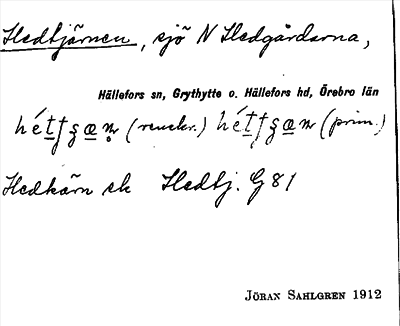 Hedtjärnen, sjö N Hedgårdarna,
Hällefors sn, Grythytte o. Hällefors hd, Örebro län
(renskr.) (prim.)
Hedkärn ek Hedtj. G 81
JÖRAN SAHLGREN 1912